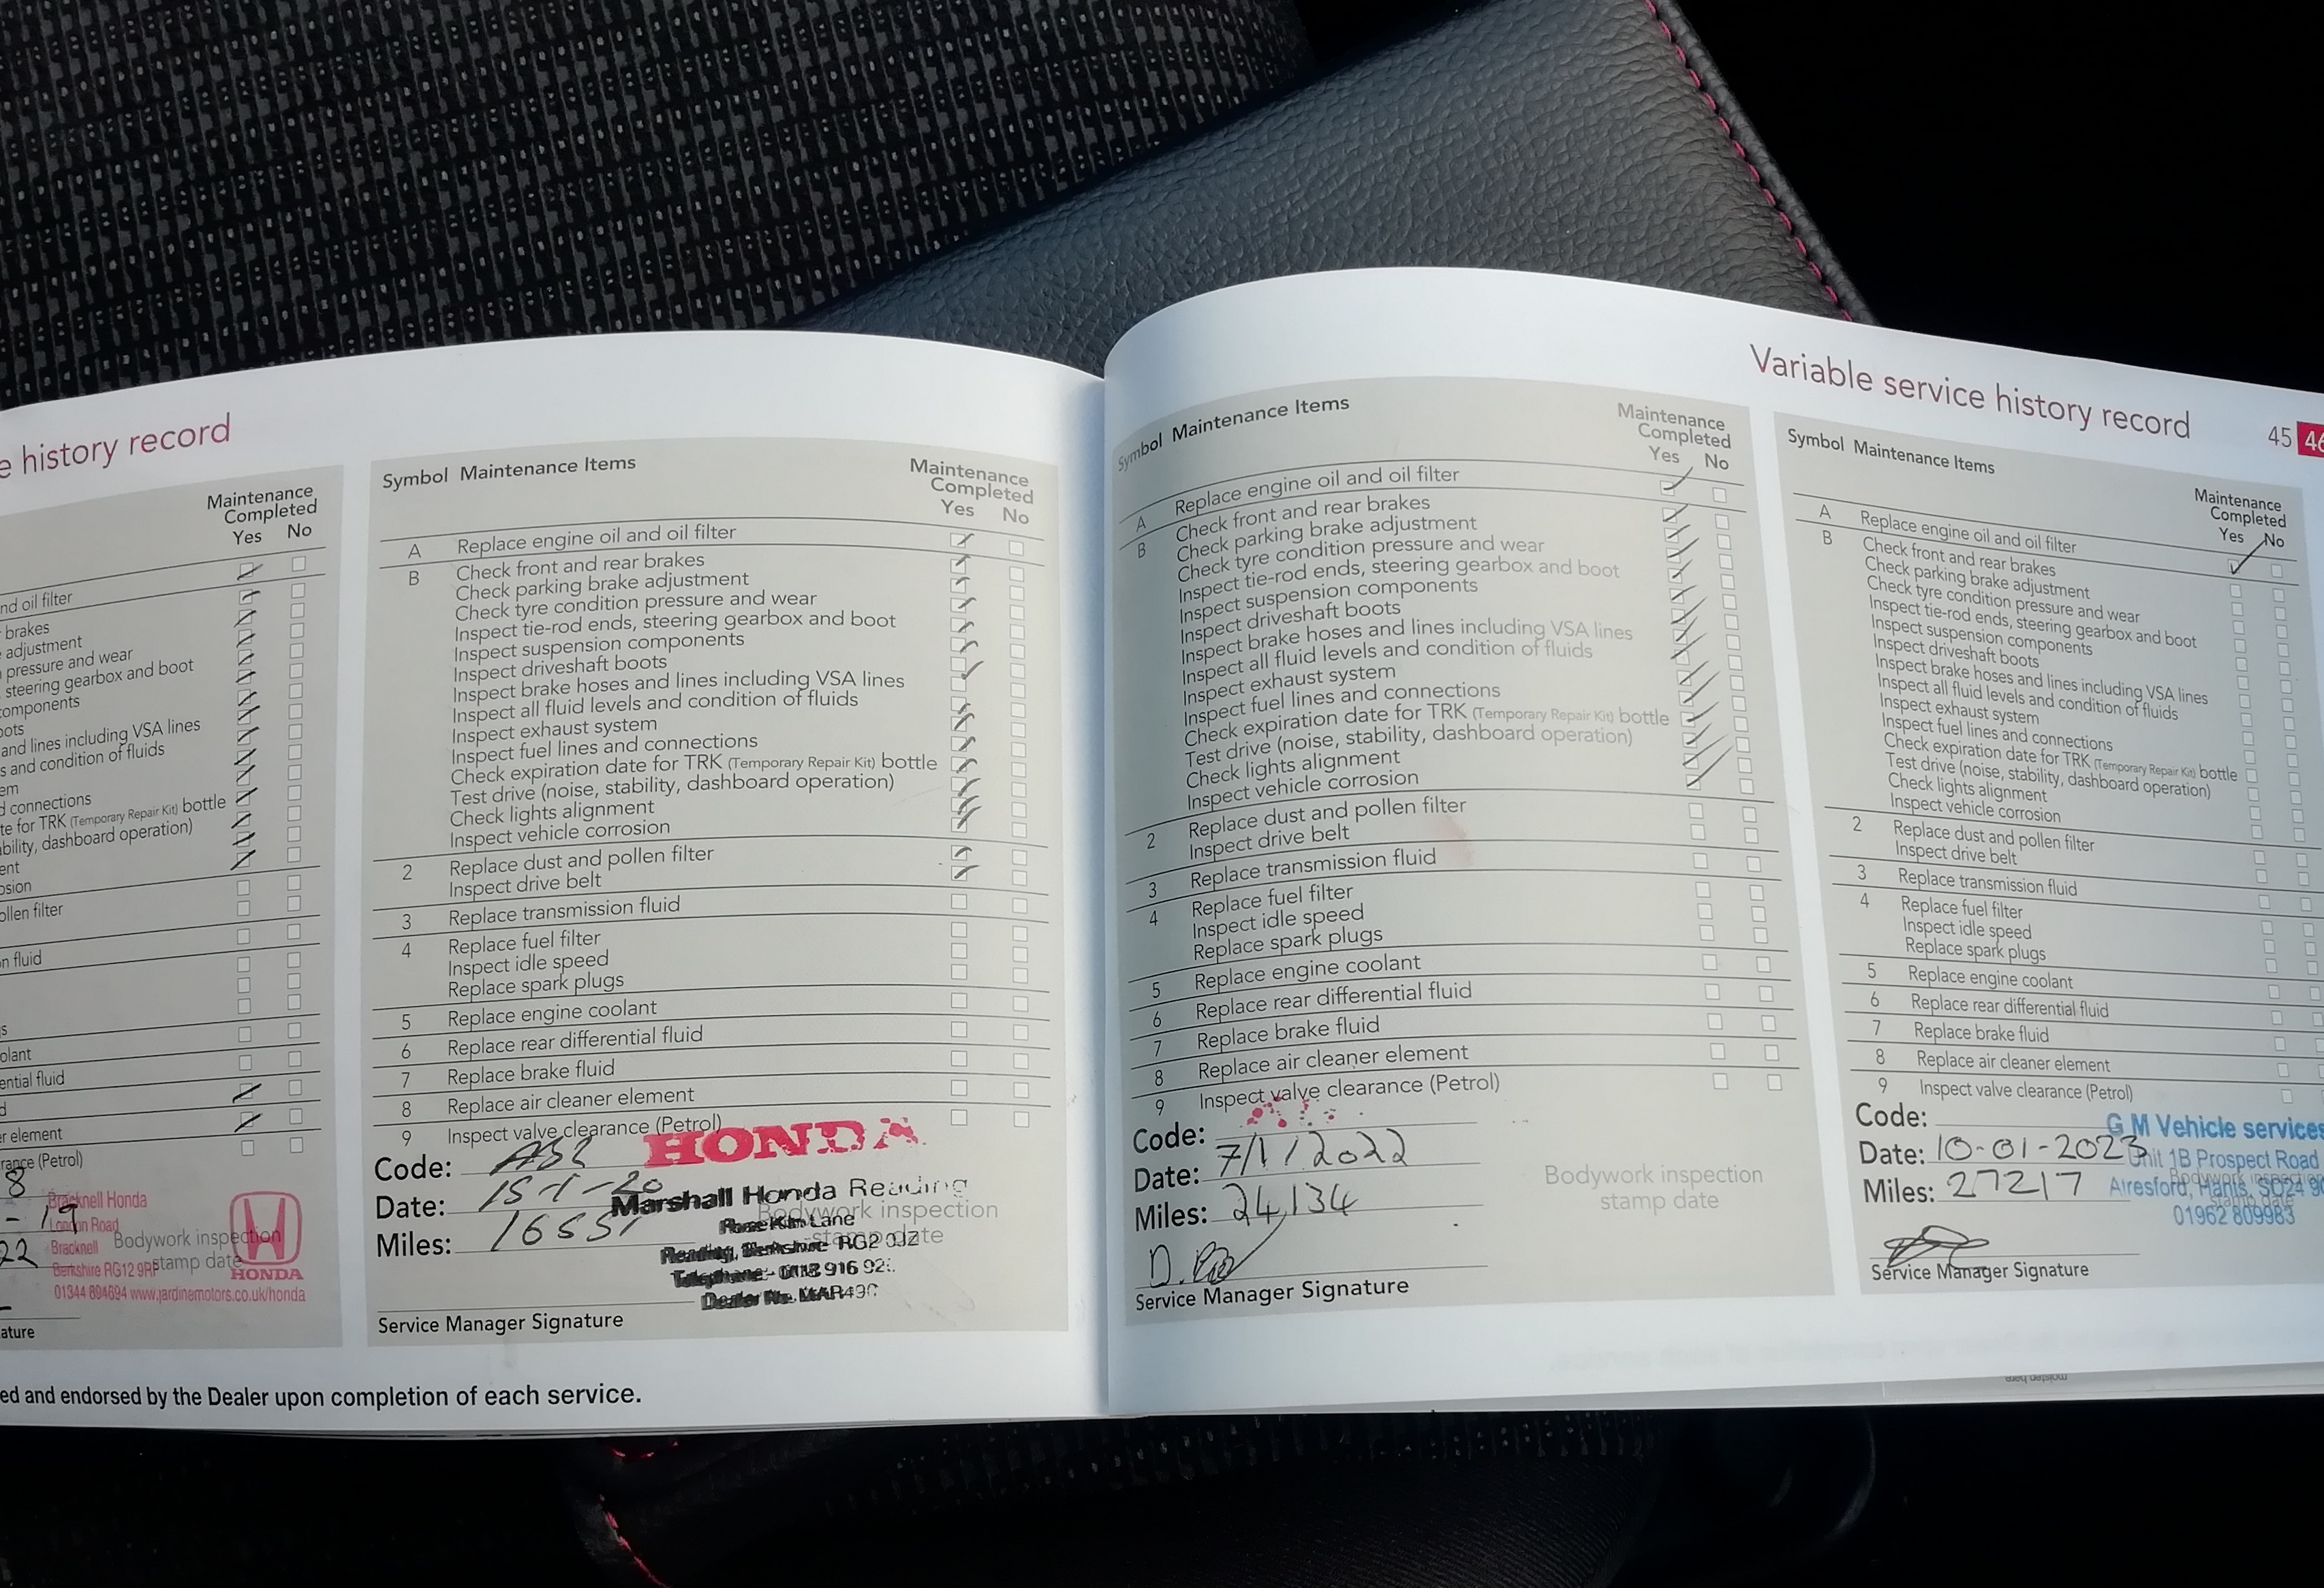 e history record
Maintenance
Completed
Yes No
nd oil filter
brakes
adjustment
pressure and wear
steering gearbox and boot
omponents
oots
and lines including VSA lines
s and condition of fluids
em
d connections
te for TRK (Temporary Repair Kit) bottle
bility, dashboard operation)
ent
osion
ollen filter
n fluid
s
olant
ential fluid
d
er element
rance (Petrol)
8
- 19
22
Bracknell Honda
London Road
Bracknell
Berkshire RG12 9RF
01344 894694 www.jardinemotors.co.uk/honda
Bodywork inspection
stamp date
HONDA
ature
Symbol Maintenance Items
Maintenance
Completed
Yes No
A Replace engine oil and oil filter
B Check front and rear brakes
Check parking brake adjustment
Check tyre condition pressure and wear
Inspect tie-rod ends, steering gearbox and boot
Inspect suspension components
Inspect driveshaft boots
Inspect brake hoses and lines including VSA lines
Inspect all fluid levels and condition of fluids
Inspect exhaust system
Inspect fuel lines and connections
Check expiration date for TRK (Temporary Repair Kit) bottle
Test drive (noise, stability, dashboard operation)
Check lights alignment
Inspect vehicle corrosion
2 Replace dust and pollen filter
Inspect drive belt
3 Replace transmission fluid
4 Replace fuel filter
Inspect idle speed
Replace spark plugs
5 Replace engine coolant
6 Replace rear differential fluid
7 Replace brake fluid
8 Replace air cleaner element
9 Inspect valve clearance (Petrol)
HONDA
Code:
Date: 15-1-20
Miles: 16551
Marshall Honda Reading
Rose Kiln Lane
Reading, Berkshire RG2 0JZ
Telephone - 0118 916 92
Dealer No. MAR490
Bodywork inspection
stamp date
Service Manager Signature
ed and endorsed by the Dealer upon completion of each service.
Variable service history record
45 46
Symbol Maintenance Items
Maintenance
Completed
Yes No
A Replace engine oil and oil filter
B Check front and rear brakes
Check parking brake adjustment
Check tyre condition pressure and wear
Inspect tie-rod ends, steering gearbox and boot
Inspect suspension components
Inspect driveshaft boots
Inspect brake hoses and lines including VSA lines
Inspect all fluid levels and condition of fluids
Inspect exhaust system
Inspect fuel lines and connections
Check expiration date for TRK (Temporary Repair Kit) bottle
Test drive (noise, stability, dashboard operation)
Check lights alignment
Inspect vehicle corrosion
2 Replace dust and pollen filter
Inspect drive belt
3 Replace transmission fluid
4 Replace fuel filter
Inspect idle speed
Replace spark plugs
5 Replace engine coolant
6 Replace rear differential fluid
7 Replace brake fluid
8 Replace air cleaner element
9 Inspect valve clearance (Petrol)
Code:
Date: 7/1/2022
Miles: 24,134
Bodywork inspection
stamp date
Service Manager Signature
Symbol Maintenance Items
Maintenance
Completed
Yes No
A Replace engine oil and oil filter
B Check front and rear brakes
Check parking brake adjustment
Check tyre condition pressure and wear
Inspect tie-rod ends, steering gearbox and boot
Inspect suspension components
Inspect driveshaft boots
Inspect brake hoses and lines including VSA lines
Inspect all fluid levels and condition of fluids
Inspect exhaust system
Inspect fuel lines and connections
Check expiration date for TRK (Temporary Repair Kit) bottle
Test drive (noise, stability, dashboard operation)
Check lights alignment
Inspect vehicle corrosion
2 Replace dust and pollen filter
Inspect drive belt
3 Replace transmission fluid
4 Replace fuel filter
Inspect idle speed
Replace spark plugs
5 Replace engine coolant
6 Replace rear differential fluid
7 Replace brake fluid
8 Replace air cleaner element
9 Inspect valve clearance (Petrol)
Code:
Date: 10-01-2023
Miles: 27217
G M Vehicle services
Unit 1B Prospect Road
Alresford, Hants, SO24 9
01962 809983
Bodywork inspection
stamp date
Service Manager Signature